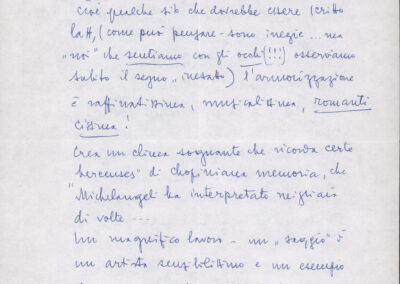 cioè qualche sib che dovrebbe essere scritto
la#, (come può pensare - sono inezie ... ma
"noi" che sentiamo con gli occhi (!!!) osserviamo
subito il segno "inesatto") l'armonizzazione
è raffinatissima, musicalissima, romanti
cissima!
Crea un clima sognante che ricorda certe
"berceuses" di chopiniana memoria, che
"Michelangeli" ha interpretato migliaia
di volte ...
Un magnifico lavoro - un "saggio" di
un artista sensibilissimo e un esempio